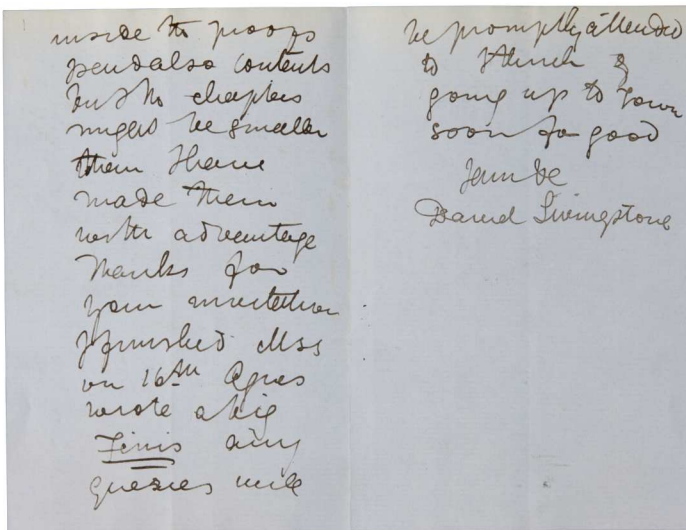 inside the proofs
send also contents
but the chapters
might be smaller
than I have
made them
with advantage
Thanks for
your invitation
I finished Mss
on 16th Agnes
wrote a big
Finis any
queries will
be promptly attended
to I think of
going up to Town
soon for good
David Livingstone